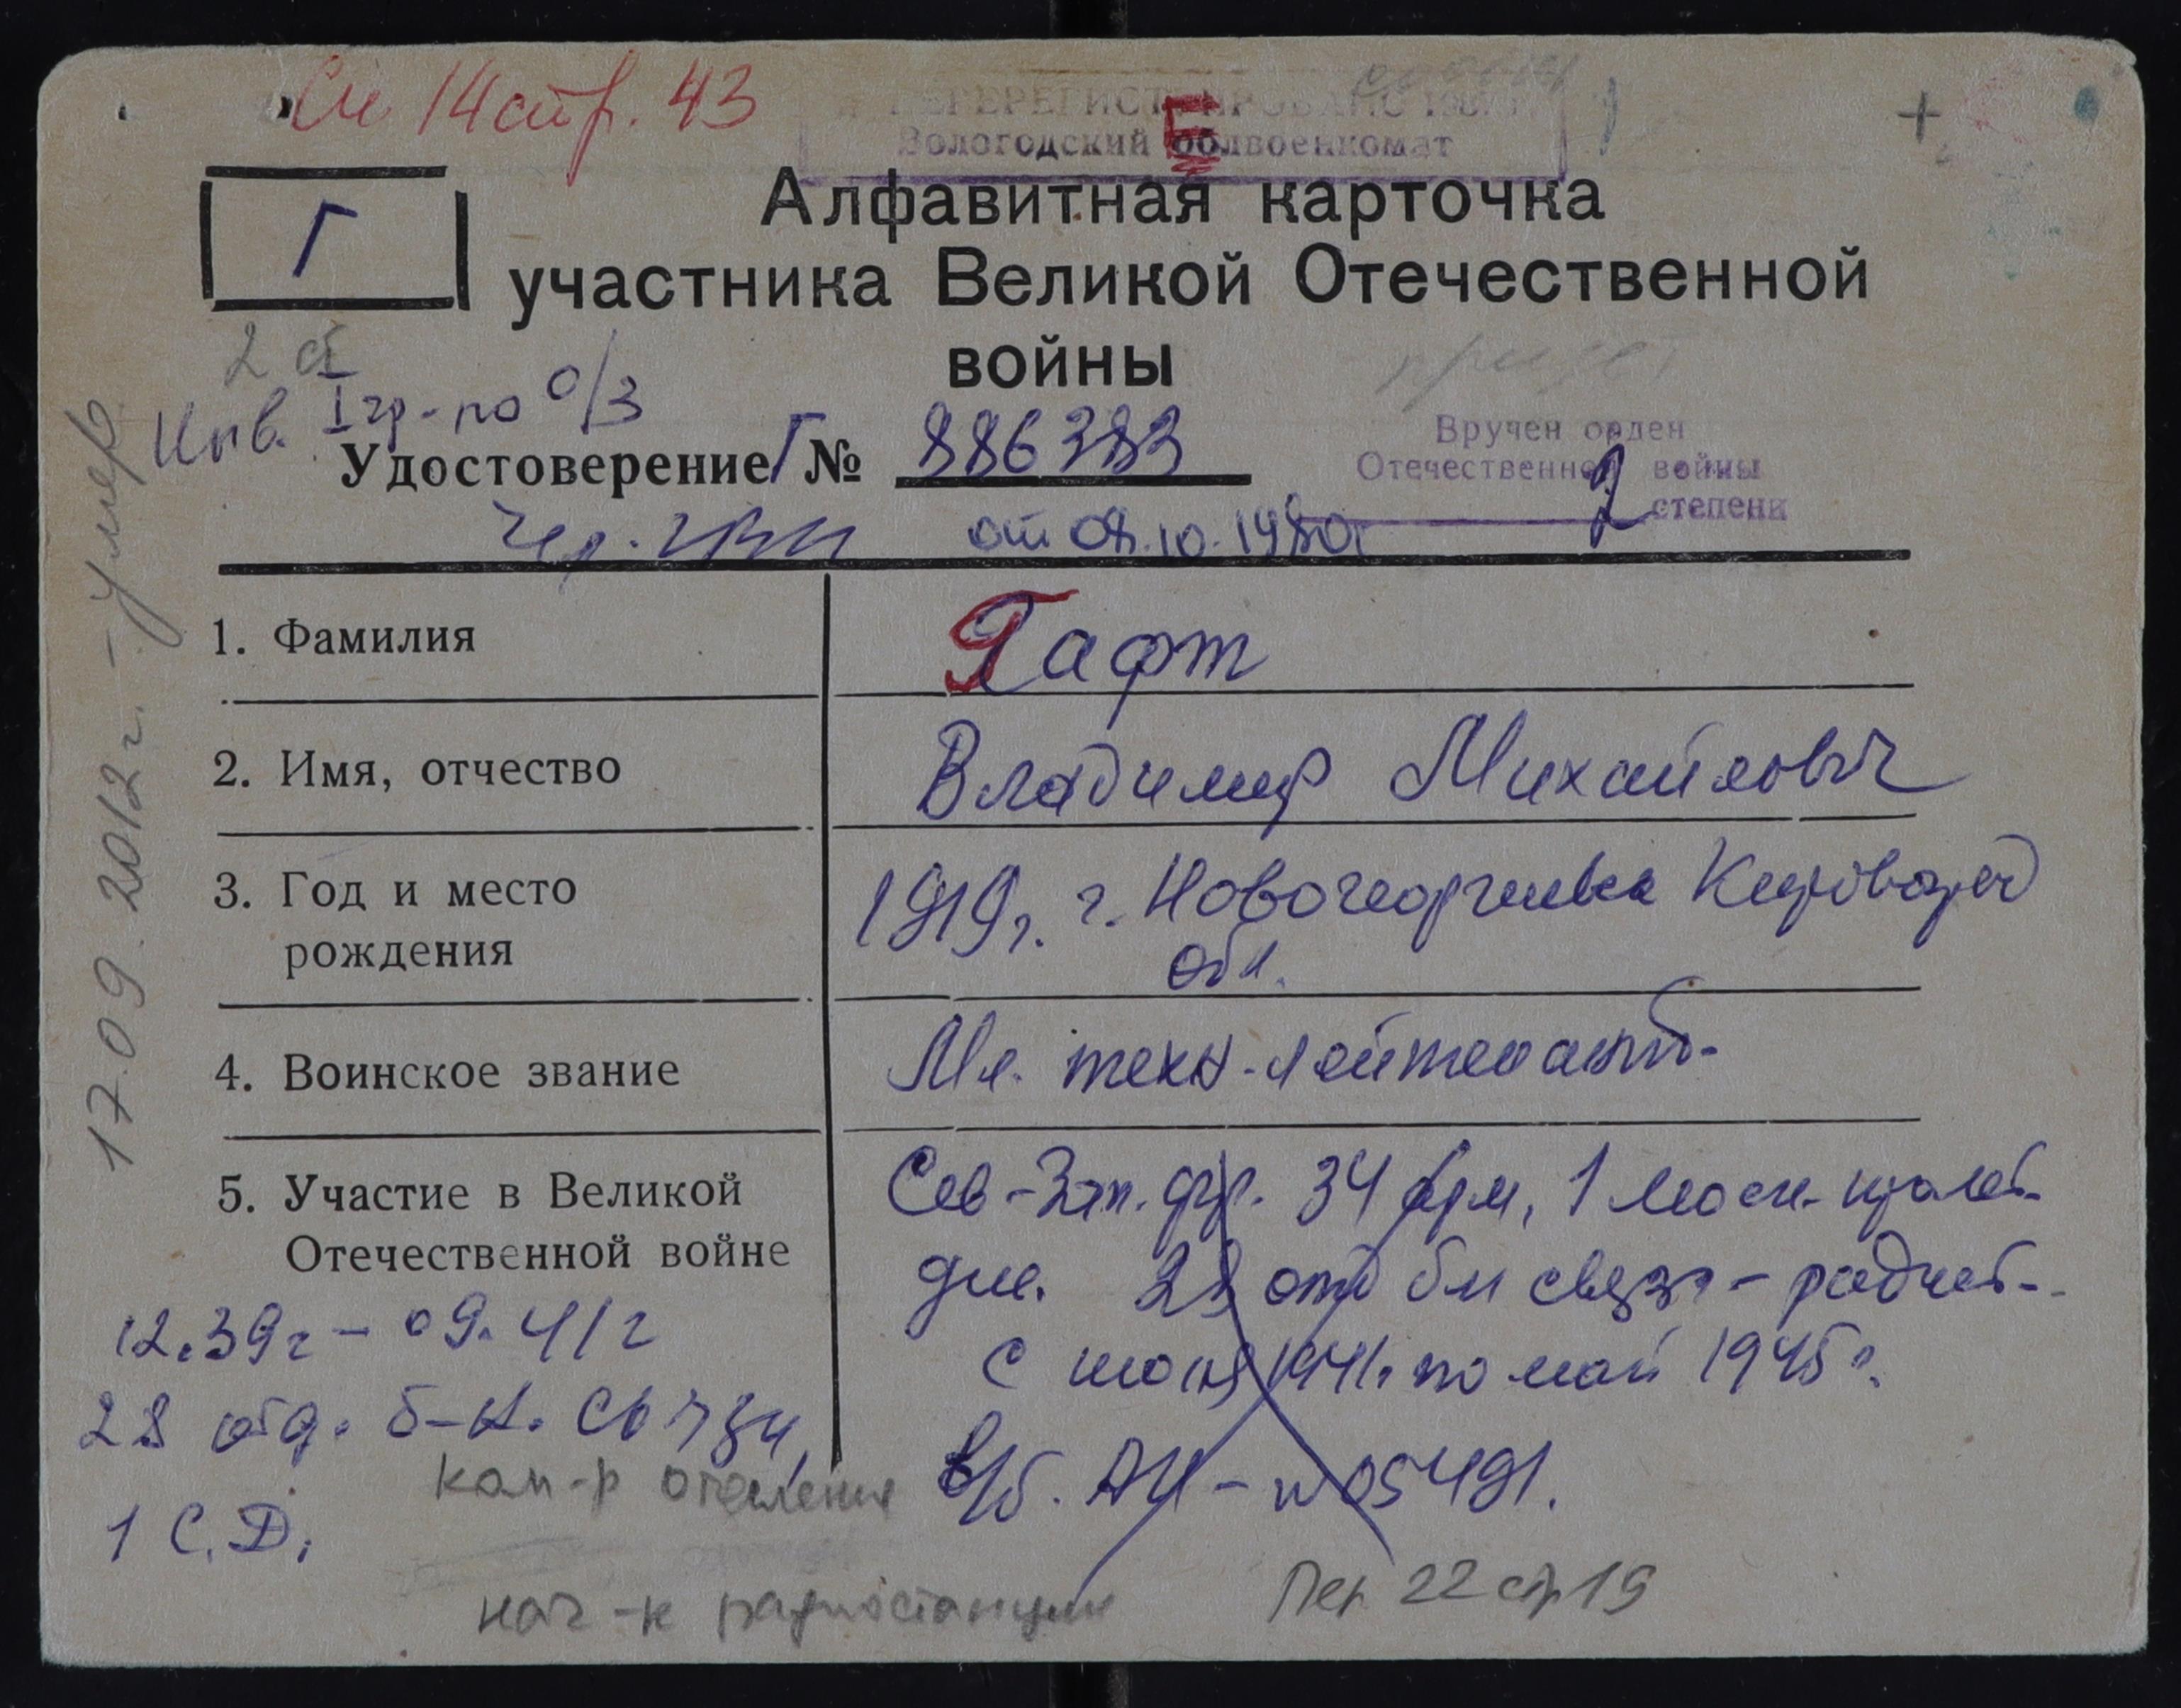 Сп 14 стр. 43
ПЕРЕРЕГИСТРИРОВАНО
Вологодский облвоенкомат
Е
+
Г
Алфавитная карточка
участника Великой Отечественной
войны
2 д
Инв. I гр-по О/З
Удостоверение Г № 886383
Вручен орден
Отечественной войны
2 степени
от 08.10.1980г
17.09.2012 г. - умер
1. Фамилия
Гафт
2. Имя, отчество
Владимир Михайлович
3. Год и место
рождения
1919г. г. Новогеоргиевка Кировогр
обл.
4. Воинское звание
Мл. техн-лейтенант
5. Участие в Великой
Отечественной войне
Сев-Зап. фр. 34 арм, 1 моск.
28 отд бн связи - радист
с июня 1941г. по май 1945г.
в/б. АИ-№ 05491.
12.39г - 09.41г
28 отд. б-н. связи,
ком-р отделения
1 С.Д.
нач-к радиостанции
Пер. 22 стр 19